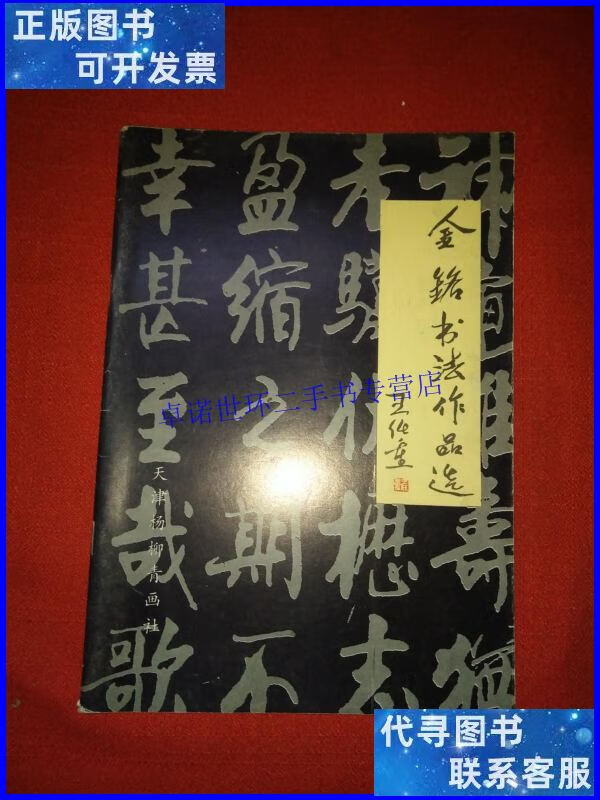 正版图书
可开发票
神龜雖壽猶
老驥伏櫪志
盈缩之期不
幸甚至哉歌
金銘书法作品选
卓诺世环二手书专营店
天津杨柳青画社
代寻图书
联系客服